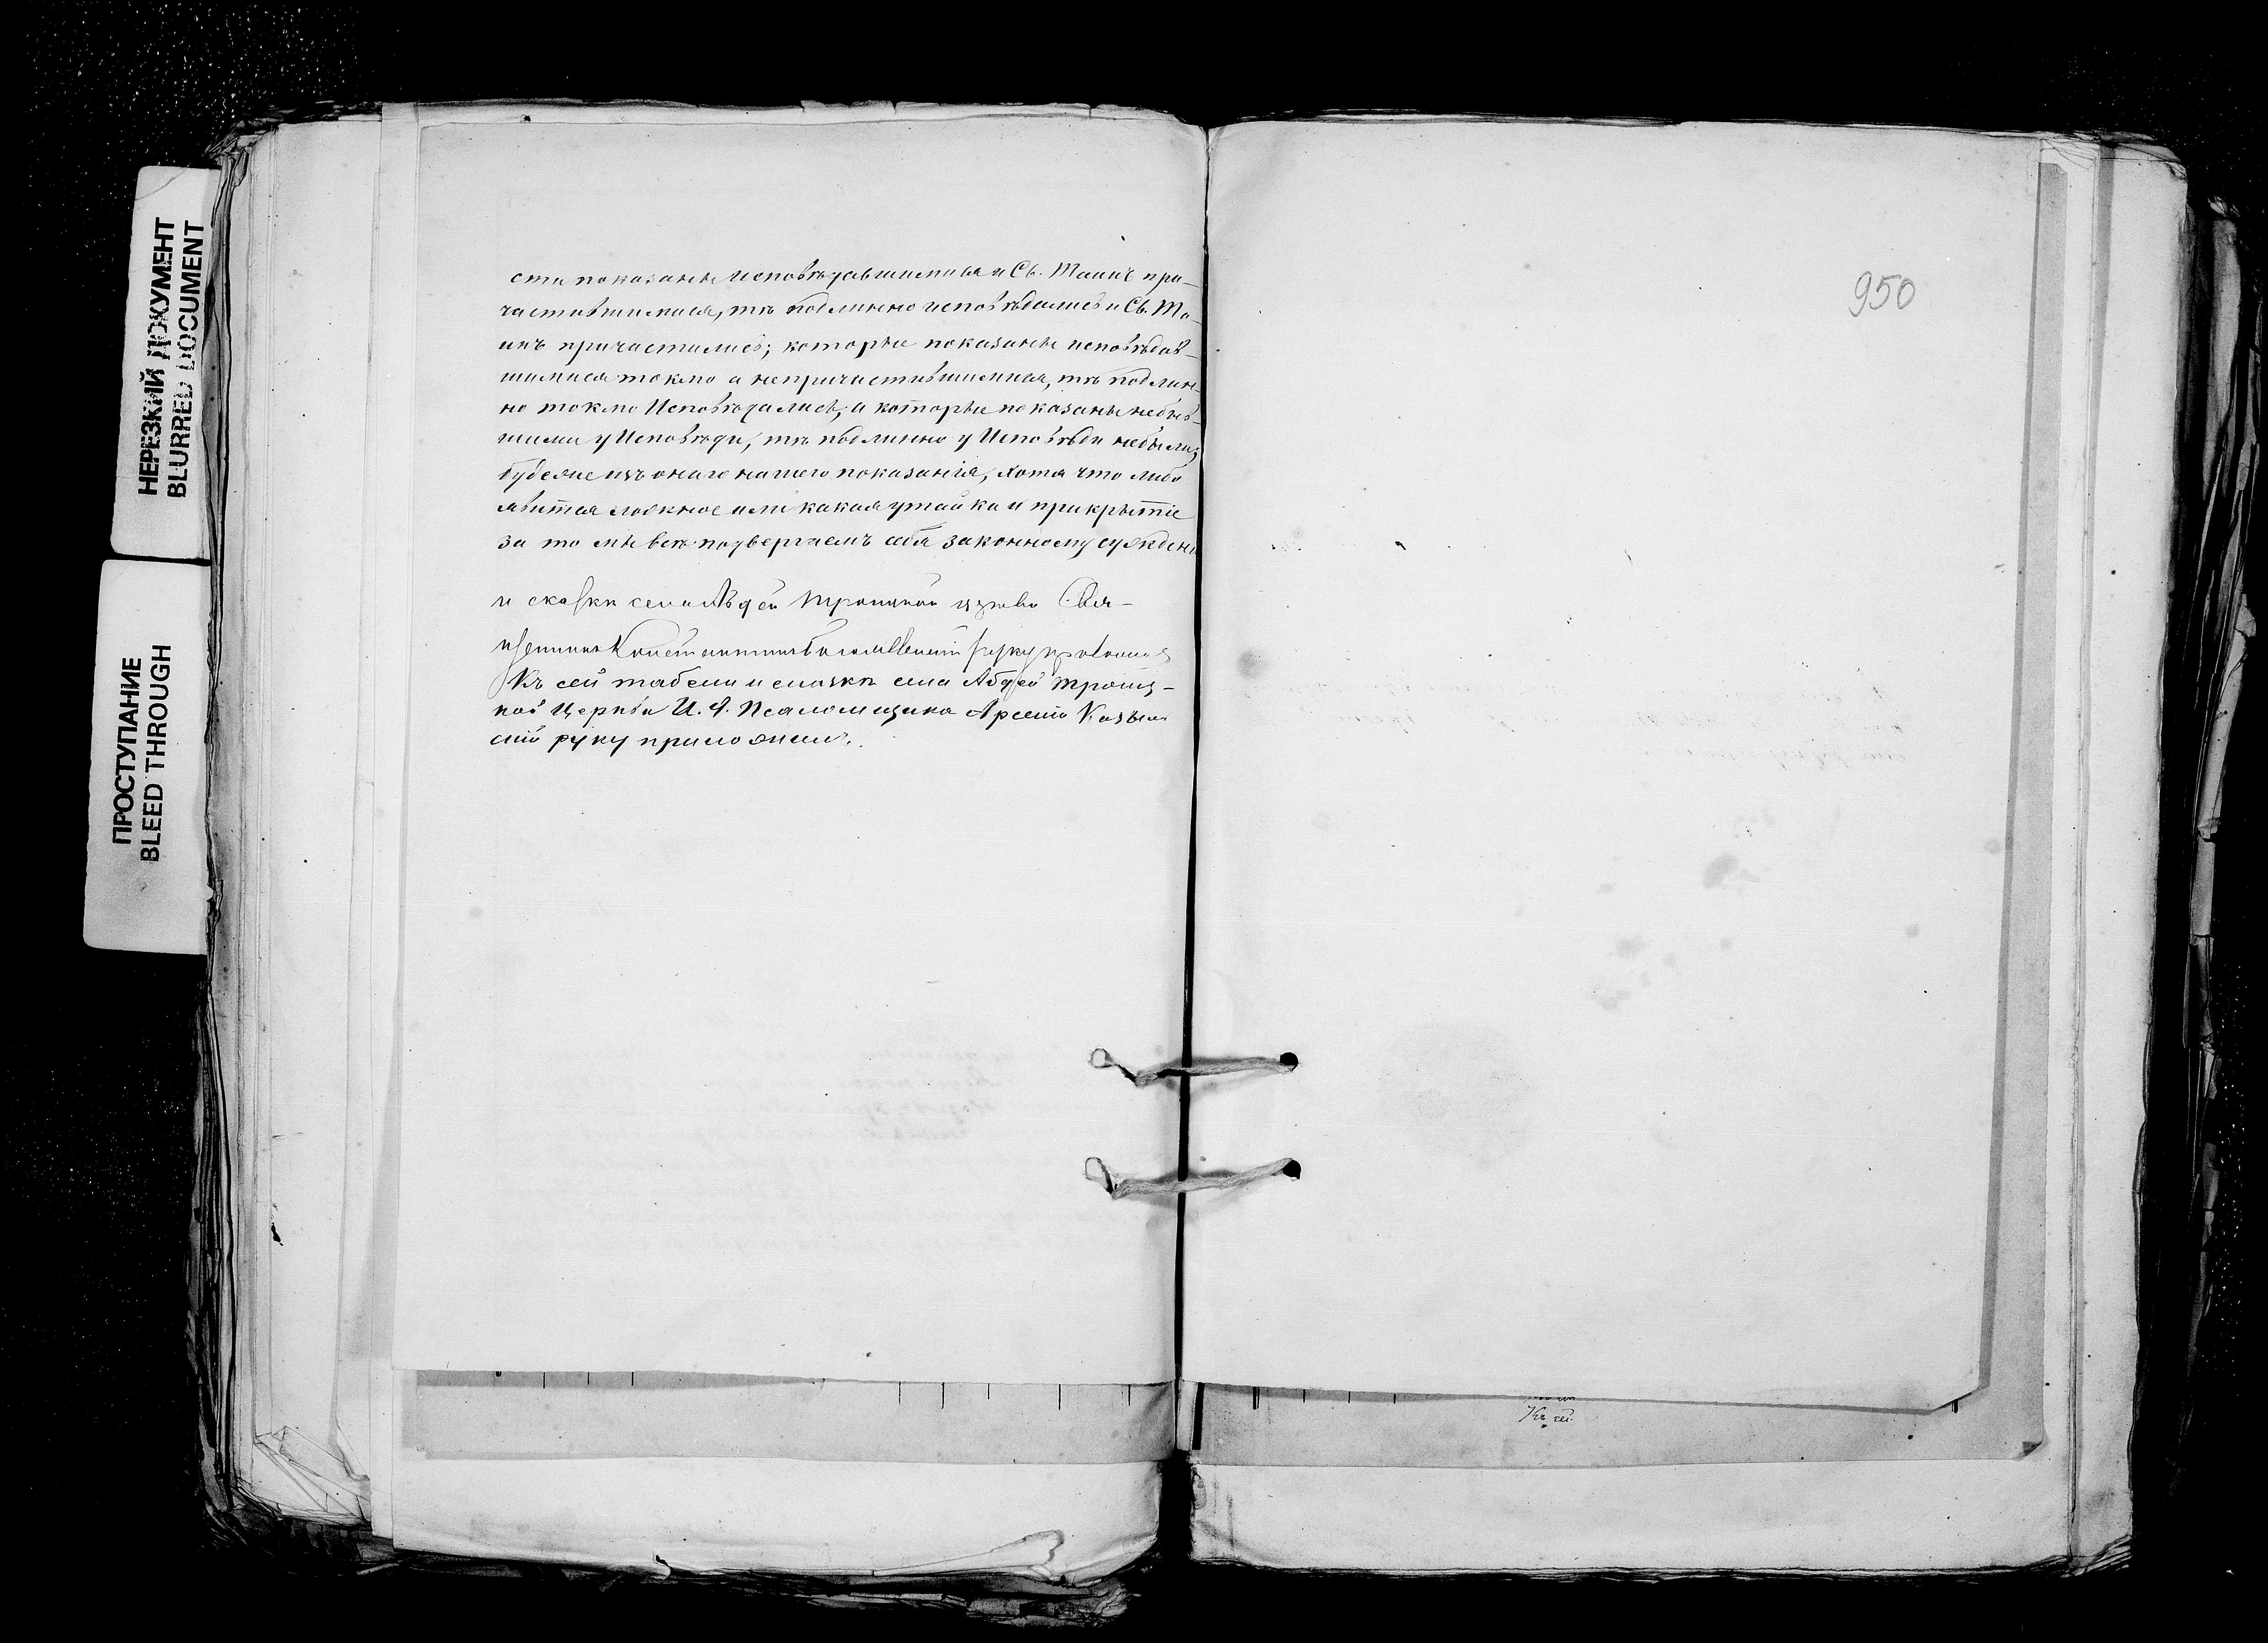 НЕРЕЗКИЙ ДОКУМЕНТ
BLURRED DOCUMENT
ПРОСТУПАНИЕ
BLEED THROUGH
сти показаны исповѣдавшимися и Св. Таинъ при-
частившимися, тѣ подлинно исповѣдались и Св. Та-
инъ причастились; которые показаны исповѣдав-
шимися токмо а непричастившимися, тѣ подлин-
но токмо Исповѣдались, а которые показаны небыв-
шими у Исповѣди, тѣ подлинно у Исповѣди небыли,
будеже изъ онаго нашего показанія, хотя что либо
явится ложное или какая утайка и прикрытіе
за то мы всѣ подвергаемъ себя законному сужден
и сказки села Абдей Троицкой церкви Свя-
щенникъ Константинъ руку приложилъ
Къ сей табели и сказкѣ села Абдей Троиц-
кой Церкви И. д. Псаломщика Арсеній
скій руку приложилъ.
950
Къ сей